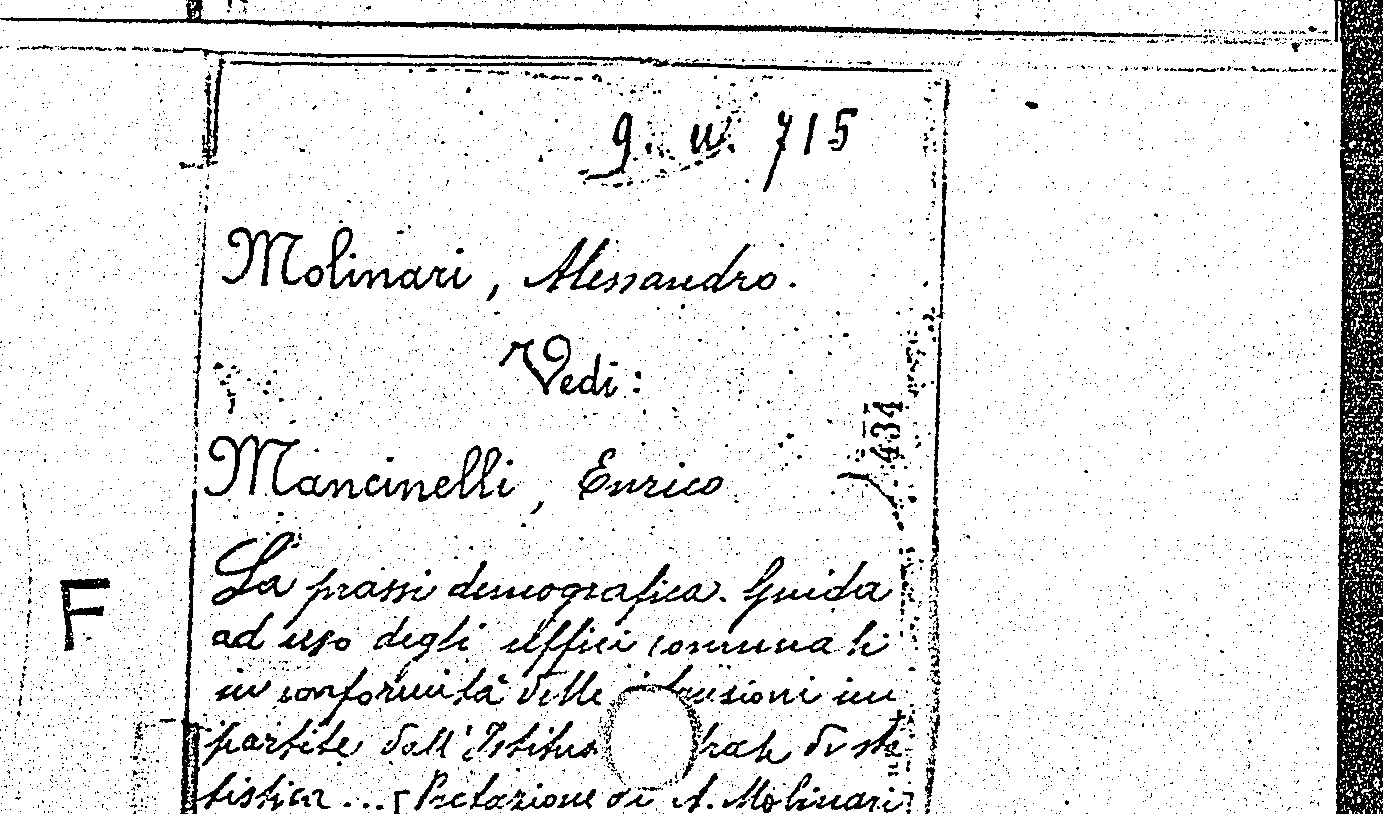 9. w. 715
Molinari, Alessandro.
Vedi:
434
Mancinelli, Enrico
La prassi demografica. Guida
F
ad uso degli uffici comunali
in conformità delle im
partite dall'Istitu di sta
tistica...[Prefazione di A. Molinari]